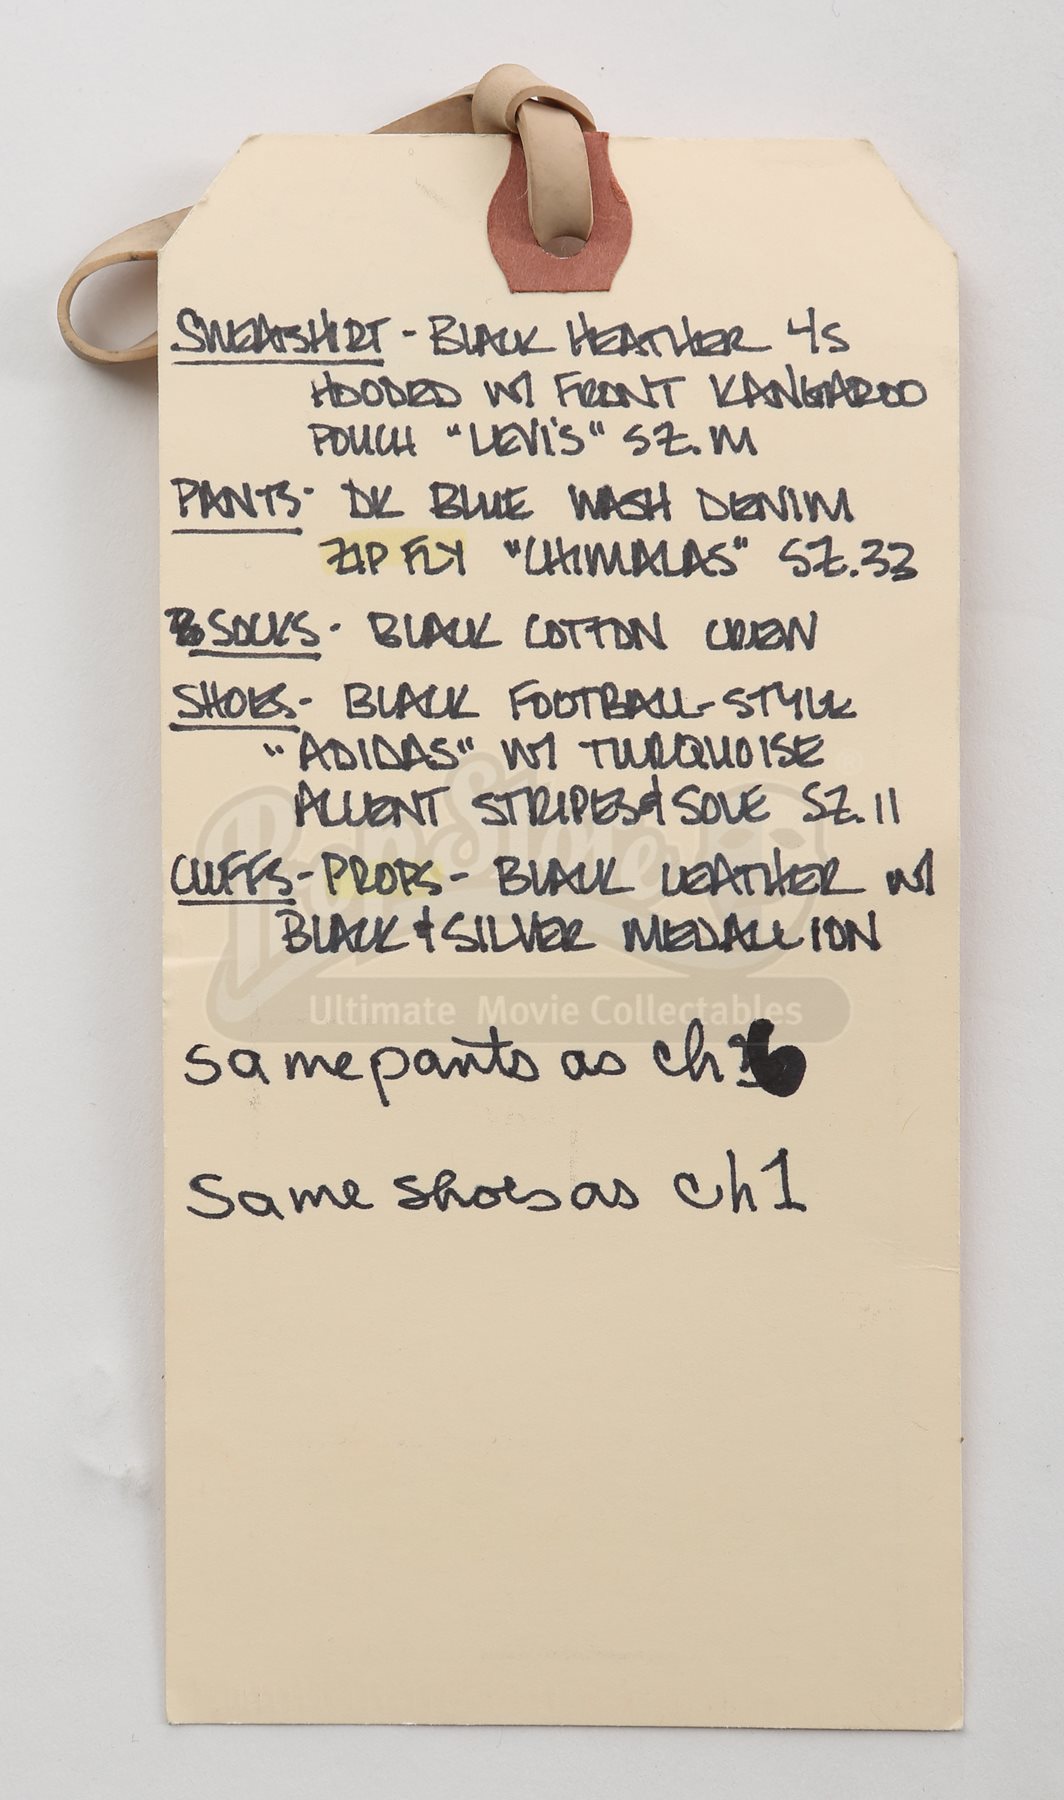 SWEATSHIRT - BLACK HEATHER L/S
HOODED W/ FRONT KANGAROO
POUCH "LEVI'S" SZ. M
PANTS - DK BLUE WASH DENIM
ZIP FLY "CHIMALAS" SZ. 33
SOCKS - BLACK COTTON CREW
SHOES - BLACK FOOTBALL-STYLE
"ADIDAS" W/ TURQUOISE
ACCENT STRIPES & SOLE SZ. 11
CUFFS - PROPS - BLACK LEATHER W/
BLACK & SILVER MEDALLION
PropStore®
Ultimate Movie Collectables
same pants as ch 6
Same shoes as ch 1